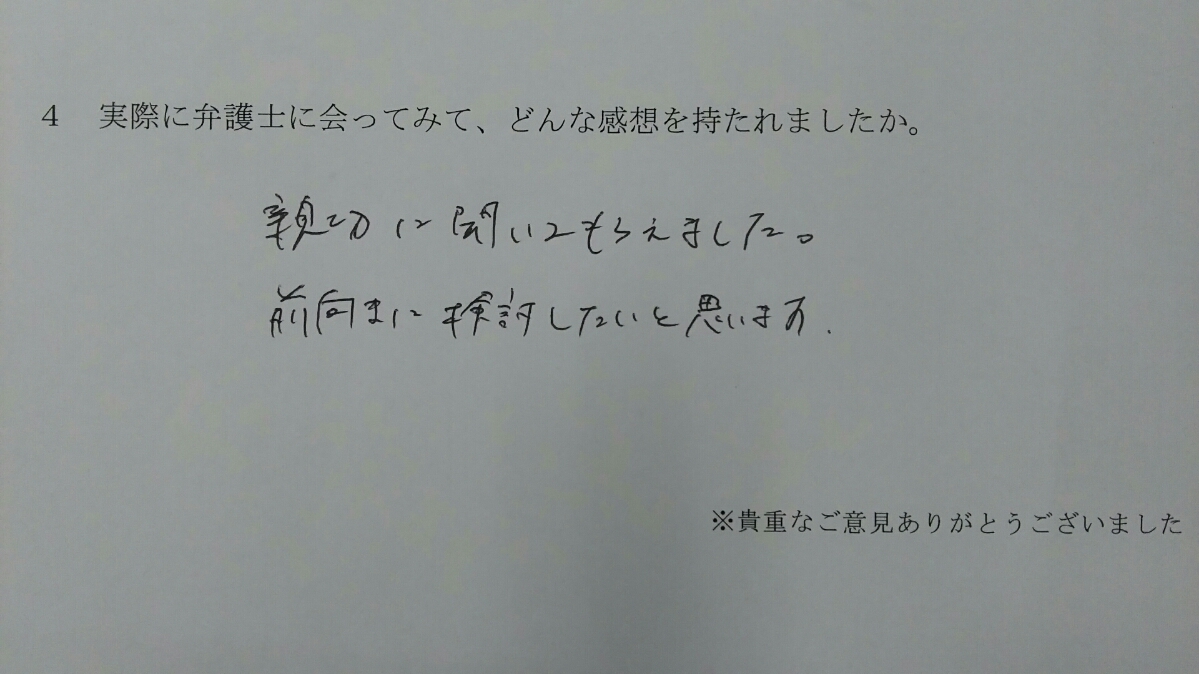 4 実際に弁護士に会ってみて、どんな感想を持たれましたか。
親切に聞いてもらえました。
前向きに検討したいと思います.
※貴重なご意見ありがとうございました